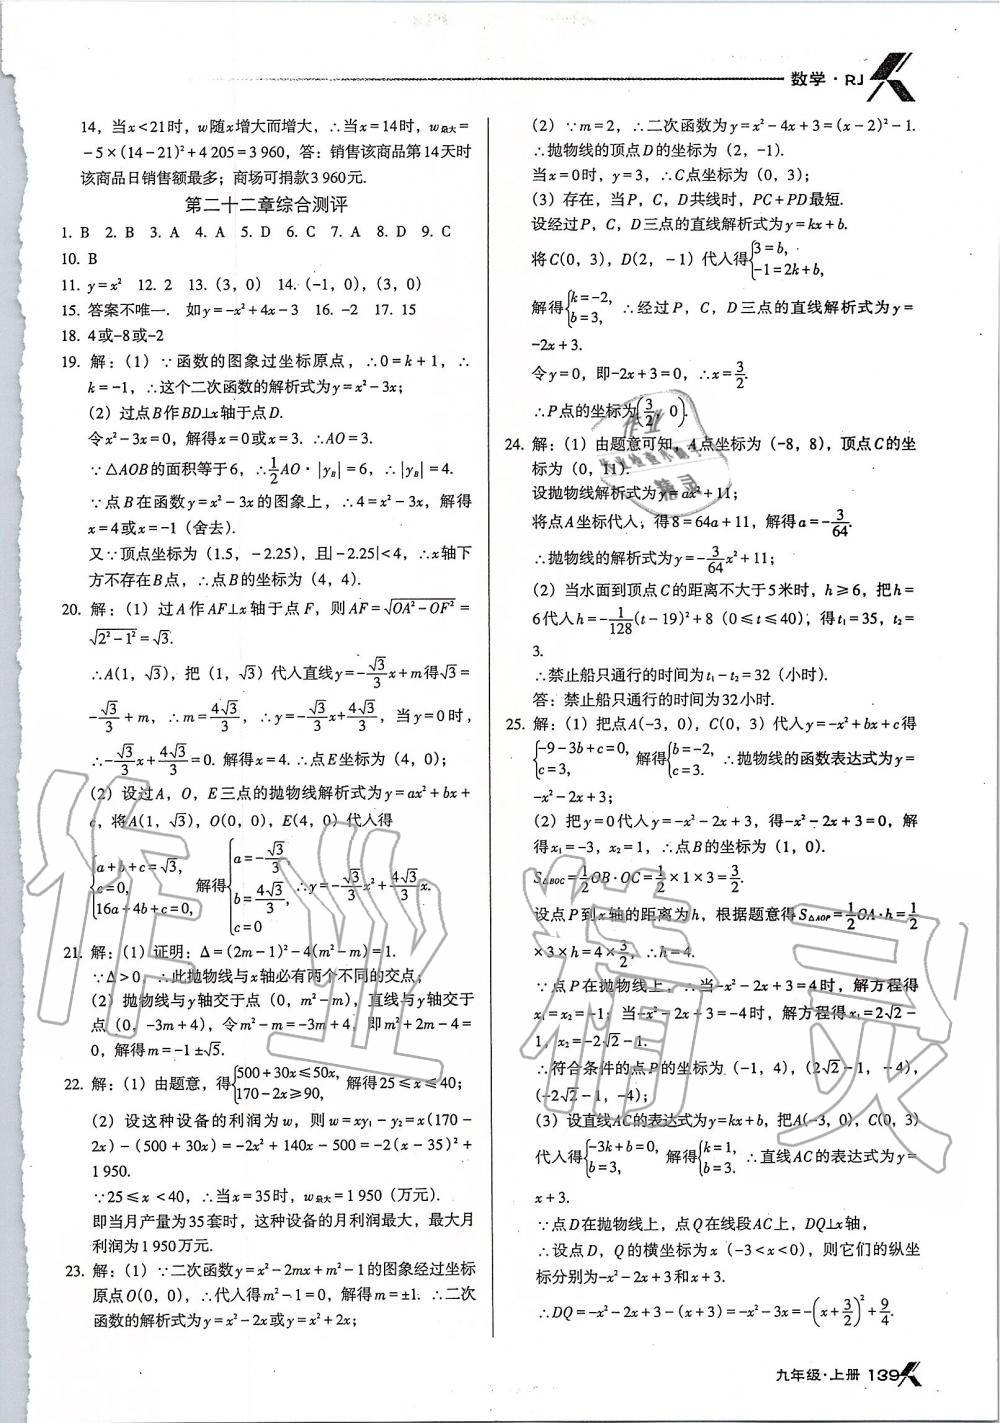 数学·RJ
14，当x＜21时，w随x增大而增大，∴当x=14时，w最大=
-5×(14-21)²+4 205=3 960，答：销售该商品第14天时
该商品日销售额最多；商场可捐款3 960元.
第二十二章综合测评
1. B  2. B  3. A  4. A  5. D  6. C  7. A  8. D  9. C
10. B
11. y=x²  12. 2  13.（3，0） 14.（-1，0），（3，0）
15. 答案不唯一.  如y=-x²+4x-3  16. -2  17. 15
18. 4或-8或-2
19. 解：（1）∵函数的图象过坐标原点，∴0=k+1，∴
k=-1，∴这个二次函数的解析式为y=x²-3x；
（2）过点B作BD⊥x轴于点D.
令x²-3x=0，解得x=0或x=3. ∴AO=3.
∵△AOB的面积等于6，∴1/2 AO·|yB|=6，∴|yB|=4.
∵点B在函数y=x²-3x的图象上，∴4=x²-3x，解得
x=4或x=-1（舍去）.
又∵顶点坐标为（1.5，-2.25），且|-2.25|<4，∴x轴下
方不存在B点，∴点B的坐标为（4，4）.
20. 解：（1）过A作AF⊥x轴于点F，则AF=√(OA²-OF²)=
√(2²-1²)=√3.
∴A(1，√3)，把（1，√3）代入直线y=-√3/3 x+m得√3=
-√3/3+m，∴m=4√3/3，∴y=-√3/3 x+4√3/3，当y=0时，
∴-√3/3 x+4√3/3=0. 解得x=4. ∴点E坐标为（4，0）；
（2）设过A，O，E三点的抛物线解析式为y=ax²+bx+
c，将A(1，√3)，O(0，0)，E(4，0）代入得
{a+b+c=√3，c=0，16a+4b+c=0，解得{a=-√3/3，b=4√3/3，c=0 ∴y=-√3/3 x²+4√3/3 x.
21. 解：（1）证明：Δ=(2m-1)²-4(m²-m)=1.
∵Δ＞0，∴此抛物线与x轴必有两个不同的交点；
（2）抛物线与y轴交于点（0，m²-m），直线与y轴交于
点（0，-3m+4），令m²-m=-3m+4，即m²+2m-4=
0，解得m=-1±√5.
22. 解：（1）由题意，得{500+30x≤50x，170-2x≥90，解得25≤x≤40；
（2）设这种设备的利润为w，则w=xy₁-y₂=x(170-
2x)-(500+30x)=-2x²+140x-500=-2(x-35)²+
1 950.
∵25≤x<40，∴当x=35时，w最大=1 950（万元）.
即当月产量为35套时，这种设备的月利润最大，最大月
利润为1 950万元.
23. 解：（1）∵二次函数y=x²-2mx+m²-1的图象经过坐标
原点O(0，0)，∴代入得m²-1=0，解得m=±1. ∴二次
函数的解析式为y=x²-2x或y=x²+2x；
（2）∵m=2，∴二次函数为y=x²-4x+3=(x-2)²-1.
∴抛物线的顶点D的坐标为（2，-1）.
当x=0时，y=3，∴C点坐标为（0，3）；
（3）存在，当P，C，D共线时，PC+PD最短.
设经过P，C，D三点的直线解析式为y=kx+b.
将C(0，3)，D(2，-1）代入得{3=b，-1=2k+b，
解得{k=-2，b=3，∴经过P，C，D三点的直线解析式为y=
-2x+3.
令y=0，即-2x+3=0，∴x=3/2.
∴P点的坐标为(3/2，0).
24. 解：（1）由题意可知，A点坐标为（-8，8），顶点C的坐
标为（0，11）.
设抛物线解析式为y=ax²+11；
将点A坐标代入，得8=64a+11，解得a=-3/64.
∴抛物线的解析式为y=-3/64 x²+11；
（2）当水面到顶点C的距离不大于5米时，h≥6，把h=
6代入h=-1/128(t-19)²+8（0≤t≤40)；得t₁=35，t₂=
3.
∴禁止船只通行的时间为t₁-t₂=32（小时）.
答：禁止船只通行的时间为32小时.
25. 解：（1）把点A(-3，0)，C(0，3）代入y=-x²+bx+c得
{-9-3b+c=0，c=3，解得{b=-2，c=3. ∴抛物线的函数表达式为y=
-x²-2x+3；
（2）把y=0代入y=-x²-2x+3，得-x²-2x+3=0，解
得x₁=-3，x₂=1，∴点B的坐标为（1，0）.
S△BOC=1/2 OB·OC=1/2×1×3=3/2.
设点P到x轴的距离为h，根据题意得S△AOP=1/2 OA·h=1/2
×3×h=4×3/2，∴h=4.
∵点P在抛物线上，∴当-x²-2x+3=4时，解方程得
x₁=x₂=-1；当-x²-2x+3=-4时，解方程得x₁=2√2-
1，x₂=-2√2-1.
∴符合条件的点P的坐标为（-1，4），（2√2-1，-4），
（-2√2-1，-4）；
（3）设直线AC的表达式为y=kx+b，把A(-3，0)，C(0，3)
代入得{-3k+b=0，b=3，解得{k=1，b=3. ∴直线AC的表达式为y=
x+3.
∵点D在抛物线上，点Q在线段AC上，DQ⊥x轴，
∴设点D，Q的横坐标为x（-3<x<0），则它们的纵坐
标分别为-x²-2x+3和x+3.
∴DQ=-x²-2x+3-(x+3)=-x²-3x=-(x+3/2)²+9/4.
九年级·上册 139
作业精灵